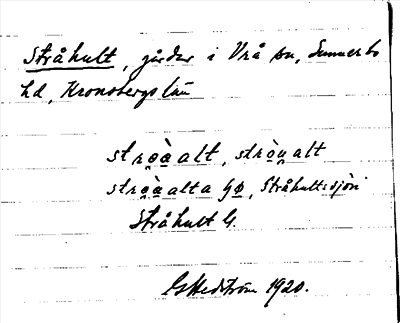 Stråhult, gårdar i Vrå sn, Sunnerbo
hd, Kronobergs län
stro̯ὰalt, strὸu̯alt
stro̯ὰalta ɧø, Stråhultssjön
Stråhult G.
G Hedström 1920.